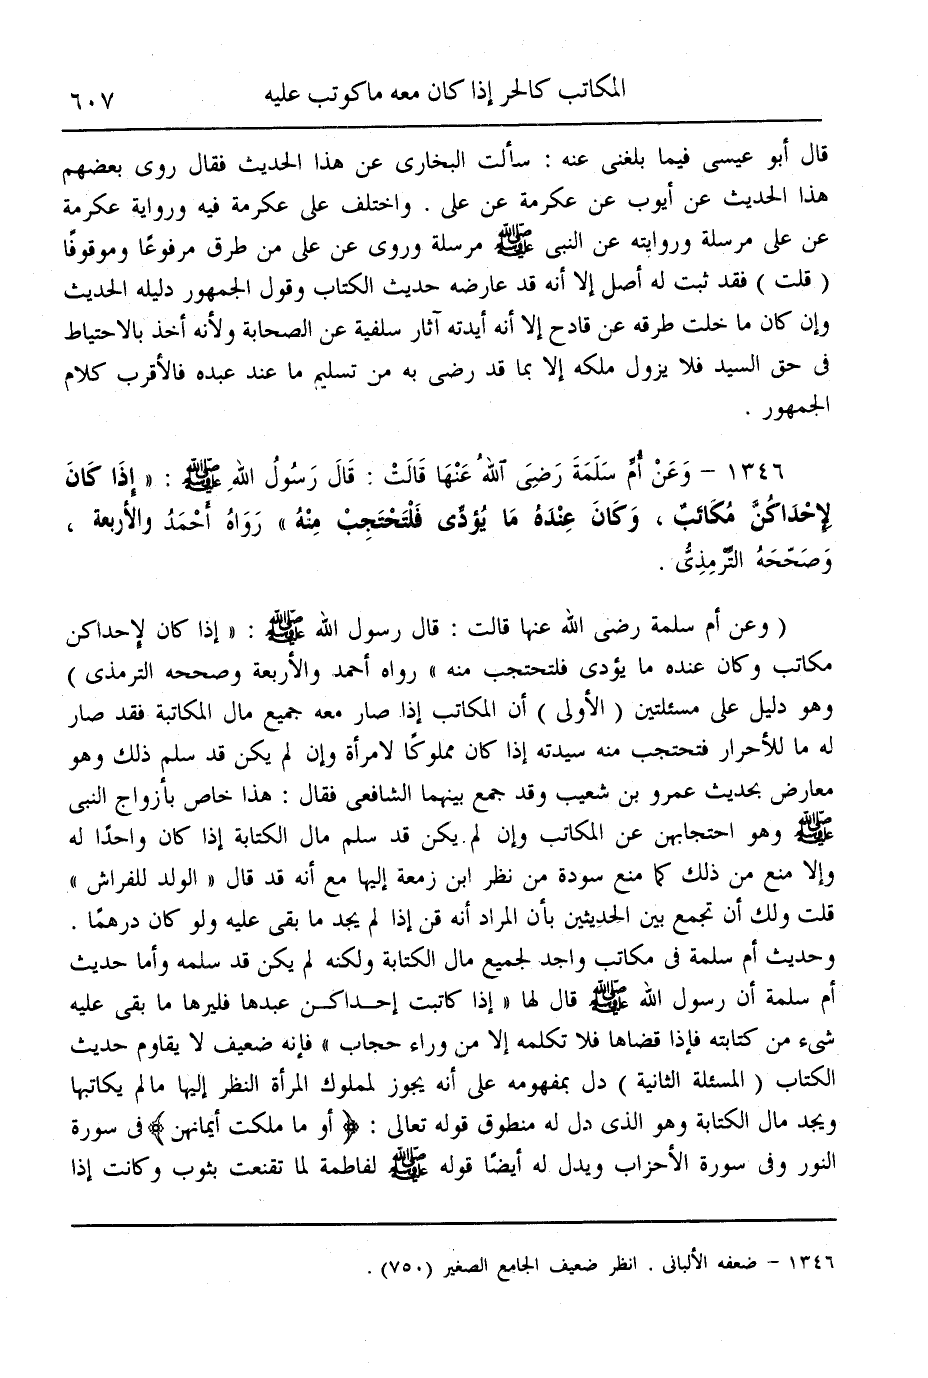 المكاتب كالحر إذا كان معه ماكوتب عليه ٦٠٧
قال أبو عيسى فيما بلغنى عنه : سألت البخارى عن هذا الحديث فقال روى بعضهم
هذا الحديث عن أيوب عن عكرمة عن على . واختلف على عكرمة فيه ورواية عكرمة
عن على مرسلة وروايته عن النبى ﷺ مرسلة وروى عن على من طرق مرفوعًا وموقوفًا
( قلت ) فقد ثبت له أصل إلا أنه قد عارضه حديث الكتاب وقول الجمهور دليله الحديث
وإن كان ما خلت طرقه عن قادح إلا أنه أيدته آثار سلفية عن الصحابة ولأنه أخذ بالاحتياط
فى حق السيد فلا يزول ملكه إلا بما قد رضى به من تسليم ما عند عبده فالأقرب كلام
الجمهور .
١٣٤٦ - وَعَنْ أُمِّ سَلَمَةَ رَضِىَ ٱللهُ عَنْهَا قَالَتْ : قَالَ رَسُولُ اللهِ ﷺ : « إِذَا كَانَ
لِإحْدَاكُنَّ مُكَاتَبٌ ، وَكَانَ عِنْدَهُ مَا يُؤدِّى فَلْتَحْتَجِبْ مِنْهُ » رَوَاهُ أَحْمَدُ والأربعة ،
وَصَحّحَهُ التِّرْمِذِىُّ .
( وعن أم سلمة رضى الله عنها قالت : قال رسول الله ﷺ : « إذا كان لإحداكن
مكاتب وكان عنده ما يؤدى فلتحتجب منه » رواه أحمد والأربعة وصححه الترمذى )
وهو دليل على مسئلتين ( الأولى ) أن المكاتب إذا صار معه جميع مال المكاتبة فقد صار
له ما للأحرار فتحتجب منه سيدته إذا كان مملوكًا لامرأة وإن لم يكن قد سلم ذلك وهو
معارض بحديث عمرو بن شعيب وقد جمع بينهما الشافعى فقال : هذا خاص بأزواج النبى
ﷺ وهو احتجابهن عن المكاتب وإن لم يكن قد سلم مال الكتابة إذا كان واجدًا له
وإلا منع من ذلك كما منع سودة من نظر ابن زمعة إليها مع أنه قد قال « الولد للفراش »
قلت ولك أن تجمع بين الحديثين بأن المراد أنه قن إذا لم يجد ما بقى عليه ولو كان درهمًا .
وحديث أم سلمة فى مكاتب واجد لجميع مال الكتابة ولكنه لم يكن قد سلمه وأما حديث
أم سلمة أن رسول الله ﷺ قال لها « إذا كاتبت إحداكن عبدها فليرها ما بقى عليه
شىء من كتابته فإذا قضاها فلا تكلمه إلا من وراء حجاب » فإنه ضعيف لا يقاوم حديث
الكتاب ( المسئلة الثانية ) دل بمفهومه على أنه يجوز لمملوك المرأة النظر إليها مالم يكاتبها
ويجد مال الكتابة وهو الذى دل له منطوق قوله تعالى : ﴿ أو ما ملكت أيمانهن ﴾ فى سورة
النور وفى سورة الأحزاب ويدل له أيضًا قوله ﷺ لفاطمة لما تقنعت بثوب وكانت إذا
١٣٤٦ - ضعفه الألبانى . انظر ضعيف الجامع الصغير (٧٥٠) .